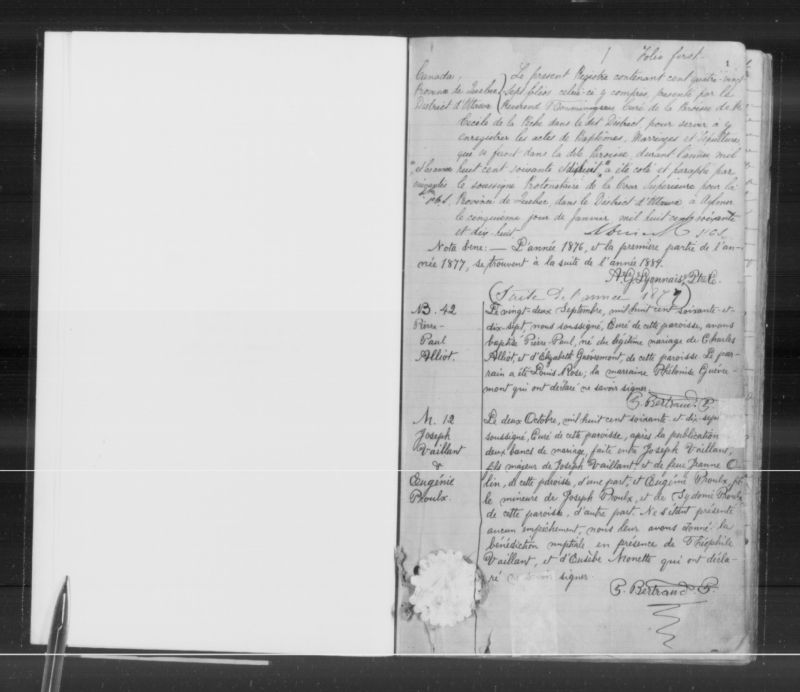 Folio first
1
Canada, Le présent Registre contenant cent quatre-vingt
Province de Québec sept folios celui-ci y compris, présenté par le
District d'Ottawa Révérend Curé de la Paroisse de Ste
Cécile de la Pêche dans le dit District, pour servir à y
enregistrer les actes de Baptêmes, Mariages et Sépultures,
qui se feront dans la dite Paroisse, durant l'année mil
huit cent soixante a été coté et paraphé par
le soussigné Protonotaire de la Cour Supérieure pour la
Province de Québec, dans le District d'Ottawa à Aylmer
le cinquième jour de Janvier mil huit cent soixante
et dix-huit
Nota bene: — L'année 1876, et la première partie de l'an-
née 1877, se trouvent à la suite de l'année 1889.
A. G. Lyonnais, Ptre C.
(Suite de l'année 1877)
B. 42
Pierre-
Paul
Alliot.
Le vingt-deux Septembre, mil huit cent soixante-et-
dix-sept, nous soussigné, Curé de cette paroisse, avons
baptisé Pierre-Paul, né du légitime mariage de Charles
Alliot, et d'Elizabeth Guévremont, de cette paroisse. Le par-
rain a été Louis Rose; la marraine Philonise Guévre-
mont qui ont déclaré ne savoir signer.
Bertrand P.
M. 12
Joseph
Vaillant
&
Eugénie
Proulx.
Le deux Octobre, mil huit cent soixante et dix-sept
soussigné, Curé de cette paroisse, après la publication
deux bancs de mariage, faite entre Joseph Vaillant,
fils majeur de Joseph Vaillant, et de feue Jeanne O-
lin, de cette paroisse, d'une part, et Eugénie Proulx, fil
le mineure de Joseph Proulx, et de Sydonie Proulx
de cette paroisse, d'autre part. Ne s'étant présenté
aucun empêchement, nous leur avons donné la
bénédiction nuptiale en présence de Théophile
Vaillant, et d'Eusèbe Monette qui ont décla-
ré ne savoir signer.
Bertrand P.